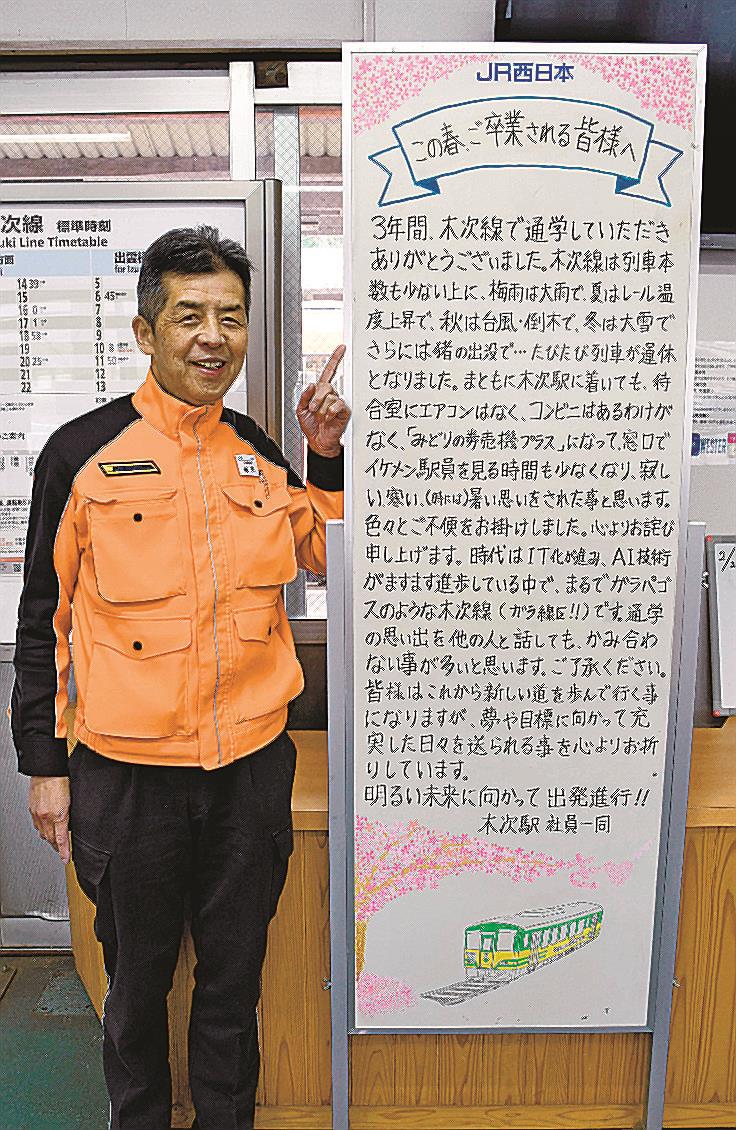 JR西日本
この春、ご卒業される皆様へ
3年間、木次線で通学していただき
ありがとうございました。木次線は列車本
数も少ない上に、梅雨は大雨で、夏はレール温
度上昇で、秋は台風・倒木で、冬は大雪で
さらには猪の出没で…たびたび列車が運休
となりました。まともに木次駅に着いても、待
合室にエアコンはなく、コンビニはあるわけが
なく、「みどりの券売機プラス」になって、窓口で
イケメン駅員を見る時間も少なくなり、寂し
い、寒い、(時には)暑い思いをされた事と思います。
色々とご不便をお掛けしました。心よりお詫び
申し上げます。時代はIT化が進み、AI技術
がますます進歩している中で、まるでガラパゴ
スのような木次線(ガラ線!!)です。通学
の思い出を他の人と話しても、かみ合わ
ない事が多いと思います。ご了承ください。
皆様はこれから新しい道を歩んで行く事
になりますが、夢や目標に向かって充
実した日々を送られる事を心よりお祈
りしています。
明るい未来に向かって出発進行!!
木次駅 社員一同
次線 標準時刻
uki Line Timetable
方面
出雲
for Izu
14 39
15
16 0
17 1
18 58
19
20 25
21
22
5
6 45
7
8
9
10 8
11 50
12
13
ご案内
WESTER
2/